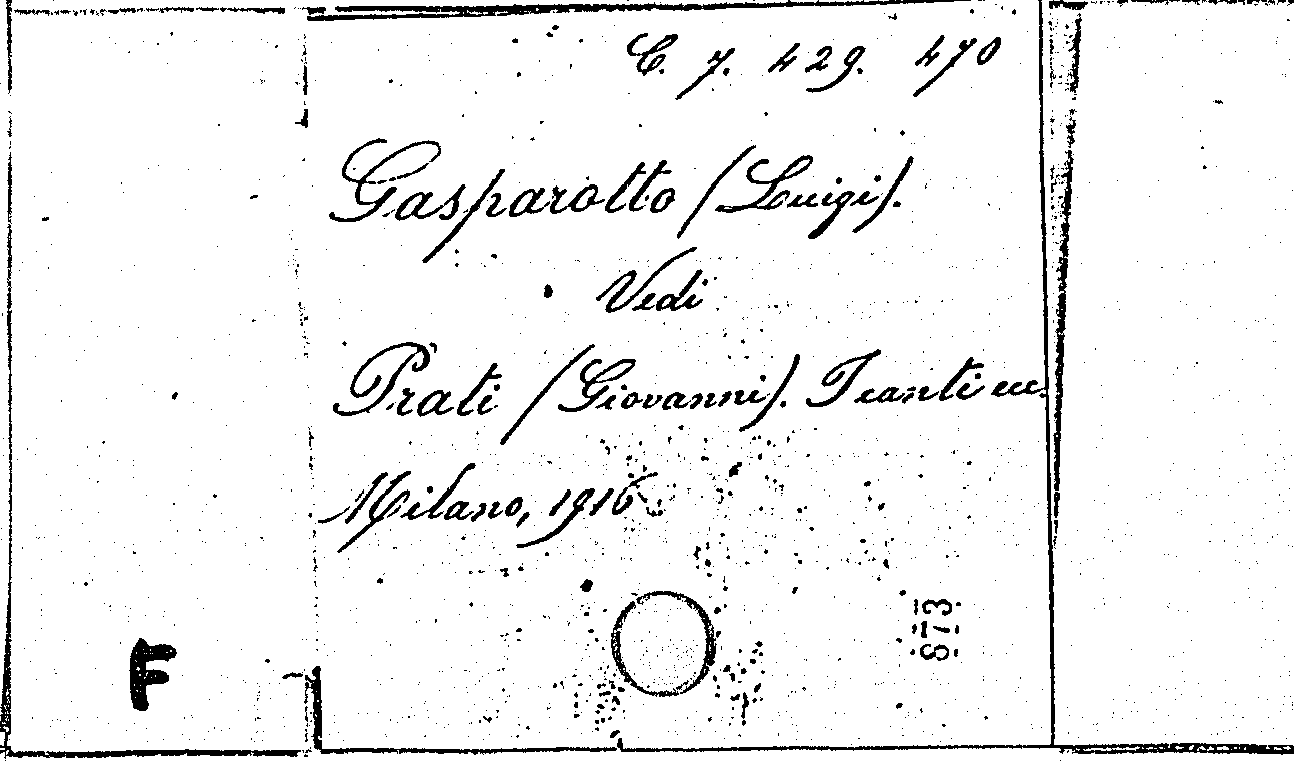 C. 7. 429. 470
Gasparotto (Luigi).
Vedi
Prati (Giovanni).
Milano, 1916
873
F